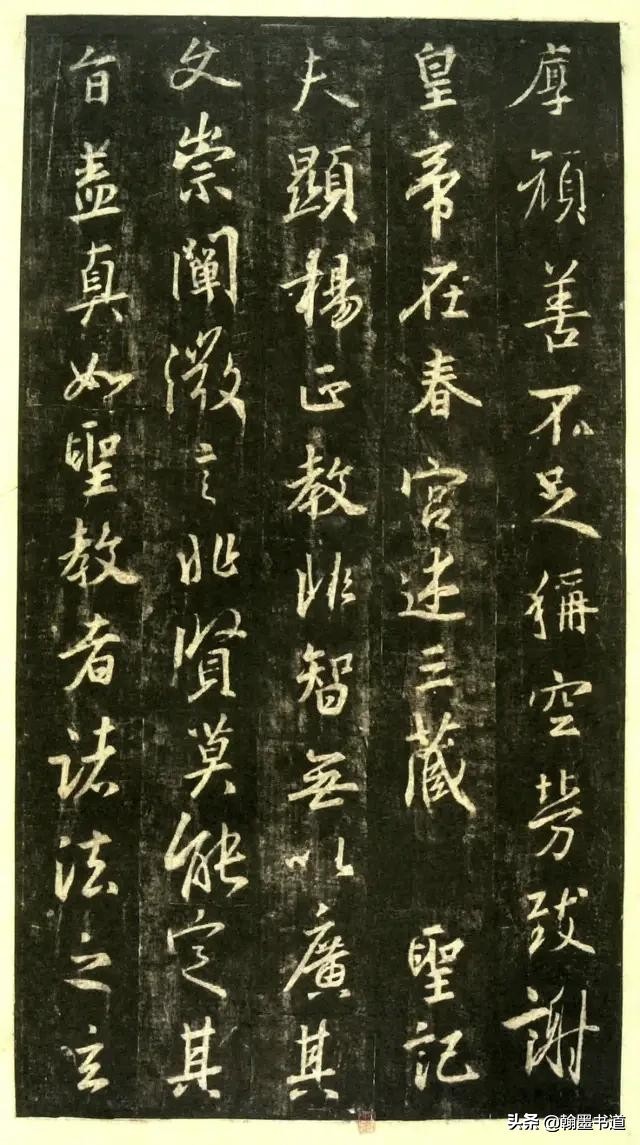 厚顔善不足稱空勞致謝
皇帝在春宮述三藏 聖記
夫顯揚正教非智無以廣其
文崇闡微言非賢莫能定其
旨蓋真如聖教者諸法之玄
头条 @翰墨书道